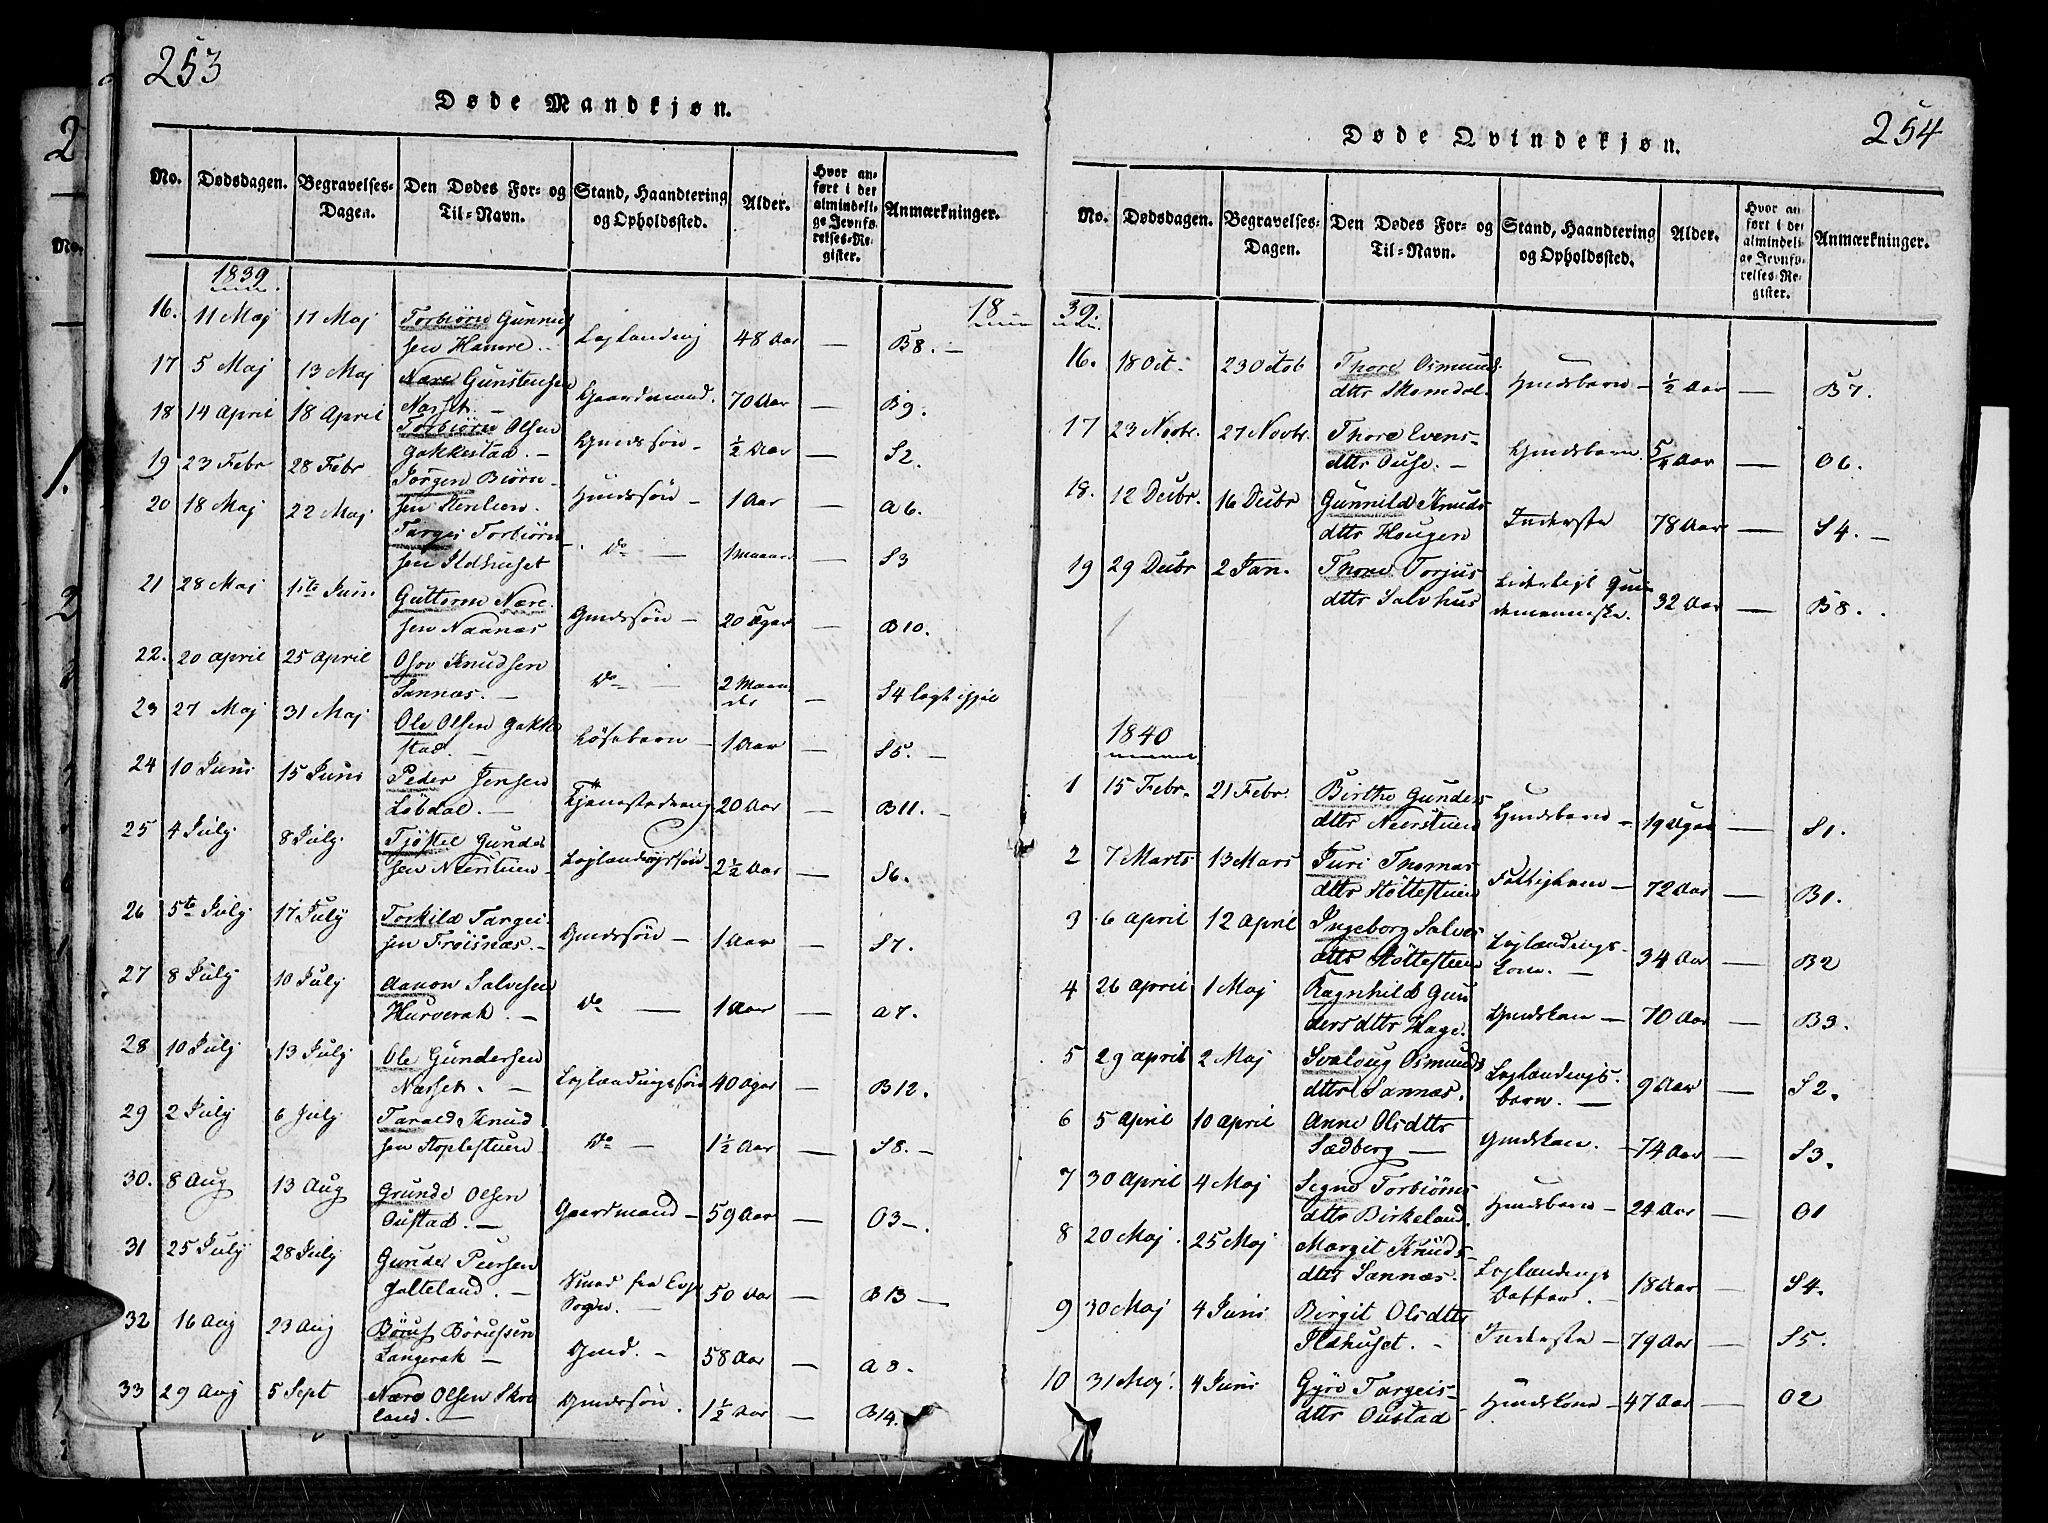 253
Døde Mandkjøn.
No. Dødsdagen. Begravelses-Dagen. Den Dødes For- og Til-Navn. Stand, Haandtering og Opholdssted. Alder. Hvor anført i det almindelige Jevnførelses-Register. Anmærkninger.
1839
16. 11 Maj 17 Maj Torbiørn Gunnufsen Hamre. Lejlænding 48 Aar — B8. —
17 5 Maj 13 Maj Nære Gunstensen Nasset. — Gaardmand. 70 Aar — B9.
18 14 April 18 April Torbiørn Olsen Gakkestad. — Gmdssön — ½ Aar — S2.
19 23 Febr 28 Febr Jørgen Biørnsen Stenlien. Gmdssön — 1 Aar — A6.
20 18 Maj 22 Maj Targei Torbiørnsen Ildhuset Do — 1 maan — S3
21 28 Maj 1ste Juni Guttorm Næresen Naanæs Gmdssön — 20 Uger — B10.
22. 20 April 25 April Osov Knudsen Sannæs. — Do — 2 Maaneder — S4 lagt ihjel
23 27 Maj 31 Maj Ole Olsen Gakkestad. — Løsebarn — 1 Aar — S5. —
24 10 Juni 15 Juni Peder Jensen Løbdal. — Tjenestedreng 20 Aar — B11. —
25 4 July 8 July. Tjøstel Gundersen Neerstuen Lejlændingssön 2½ Aar — S6.
26 5te July 17 July Torkild Targeisen Frøisnæs. — Gmdssön — 1 Aar — S7.
27 8 July 10 July Aanon Salvesen Hurverak. — Do — 1 Aar — A7.
28 10 July 13 July Ole Gundersen Nasset. — Lejlændingssön 40 Uger — B12.
29 2 July 6 July Tarald Knudsen Stoplestuen Do — 1½ Aar — S8. —
30. 8 Aug 13 Aug Grunde Olsen Oustad. — Gaardmand — 59 Aar — O3 —.
31 25 July 28 July Gunder Peersen Galteland. — fra Evje Sogn. — 50 Aar — B13 —
32 16 Aug 23 Aug Børuf Børufsen Langerak — Gmd. — 58 Aar — A8.
33 29 Aug 5 Sept Nære Olsen Skreland. — Gmdssön. 1½ Aar — B14.
254
Døde Qvindekjøn.
No. Dødsdagen. Begravelses-Dagen. Den Dødes For- og Til-Navn. Stand, Haandtering og Opholdssted. Alder. Hvor anført i det almindelige Jevnførelses-Register. Anmærkninger.
1839.
16. 18 Oct. 23 Octob Thore Osmundsdttr Skomedal. Gmdsbarn — ½ Aar — B7.
17 23 Novbr. 27 Novbr. Thore Evensdttr Ouse. — Gmdsbarn 5/4 Aar — O6.
18. 12 Decbr. 16 Decbr Gunnild Knudsdttr Hougen Inderste 78 Aar — S4. —
19 29 Decbr 2 Jan. Thore Torjusdttr Salvhus 32 Aar — B8.
1840
1 15 Febr. 21 Febr. Birthe Gundersdttr Neerstuen Gmdsbarn — 19 Uger — S1.
2 7 Marts 13 Mars Juri Thomasdttr Støttestuen Fattiglem — 72 Aar — B1.
3 6 April 12 April Ingeborg Salvesdttr Støttestuen Lejlændings Kone. — 34 Aar — B2
4 26 April 1 Maj Ragnhild Gundersdttr Hage. Gmdskone — 70 Aar — B3.
5 29 April 2 Maj Svaloug Osmundsdttr Sannæs. Lejlændingsbarn. — 9 Aar — S2.
6 5 April 10 April Anne Olsdttr Sædberg — Gmdskone. 74 Aar — S3.
7 30 April 4 Maj Segne Torbiørnsdttr Birkeland. Gmdsbarn — 24 Aar — O1
8 20 Maj. 25 Maj Margit Knudsdttr Sannæs. Lejlændings Datter. — 18 Aar — S4.
9 30 Maj 4 Juni Birgit Olsdttr Ildhuset. — Inderste — 79 Aar — S5.
10 31 Maj. 4 Juni Gyro Targeisdttr Oustad Gmdskone — 47 Aar — O2